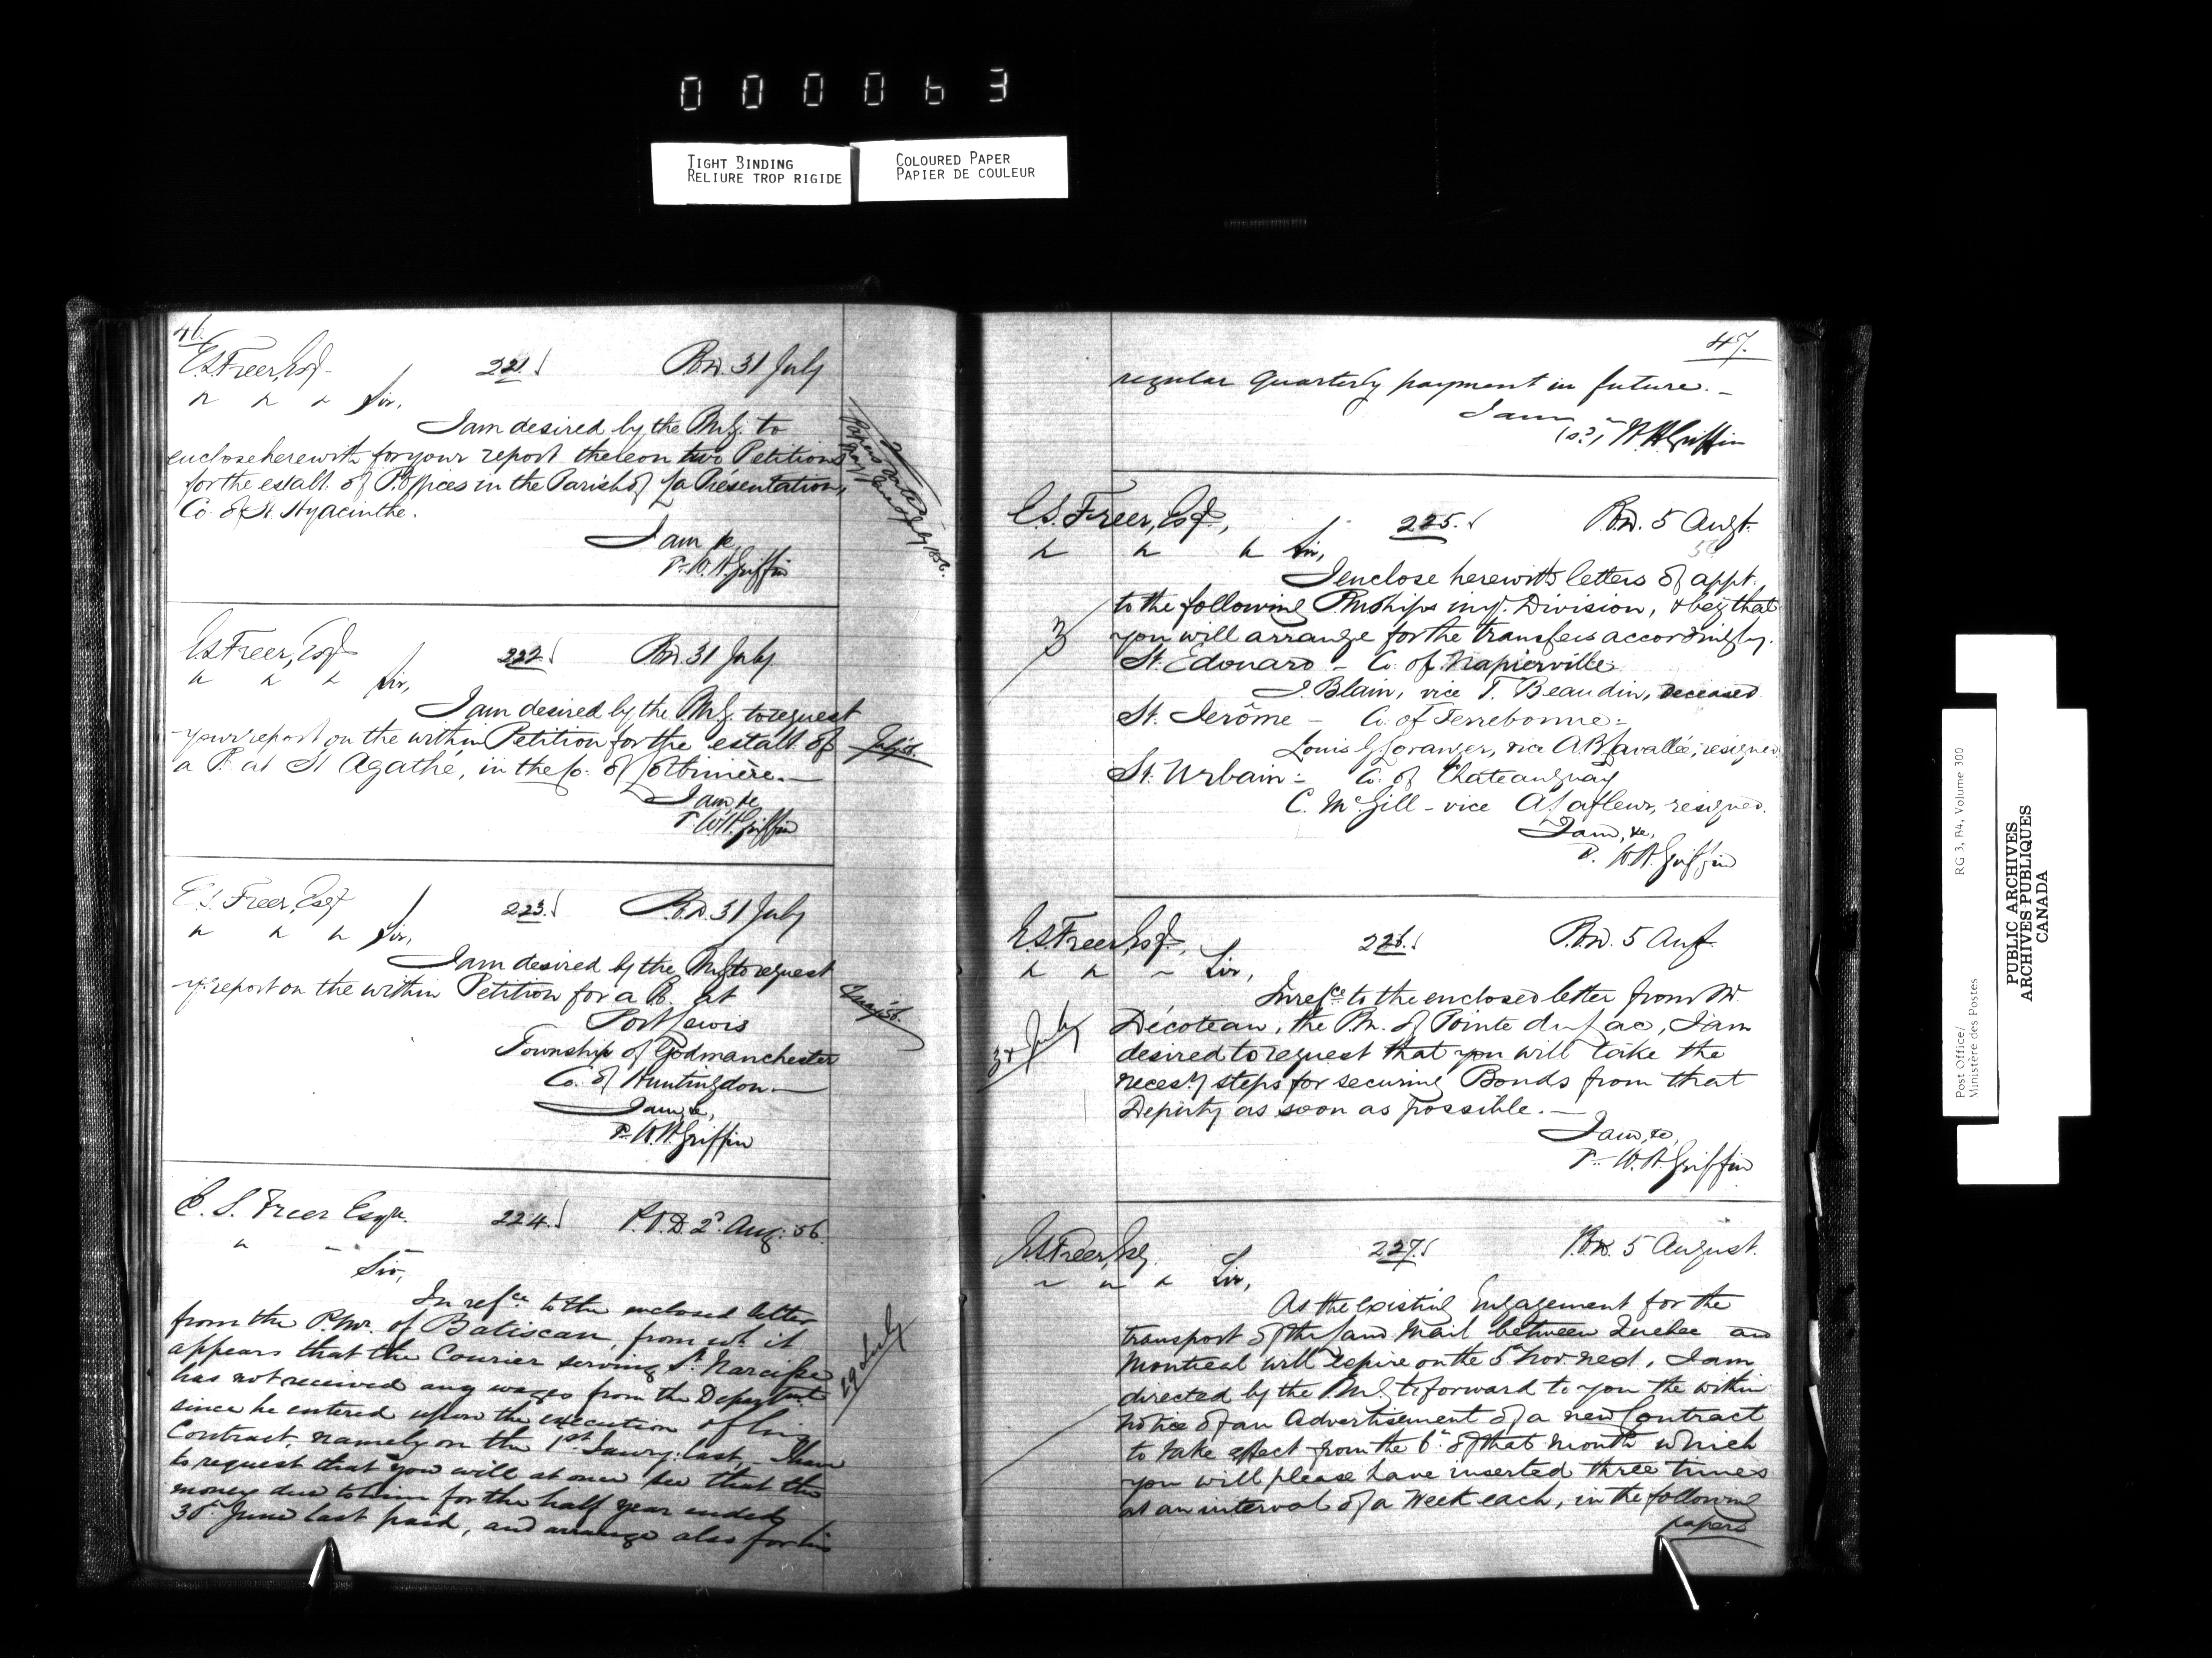 000063
TIGHT BINDING
RELIURE TROP RIGIDE
COLOURED PAPER
PAPIER DE COULEUR
46
E.S. Freer, Esq. 221. P.O.D. 31 July
" " " Sir,
I am desired by the P.M.G. to
enclose herewith for your report thereon two Petitions
for the establt. of P. Offices in the Parish of La Présentation,
Co. of St. Hyacinthe.
I am, &c
P. W.H. Griffin
E.S. Freer, Esq 222. P.O.D. 31 July
" " " Sir,
I am desired by the P.M.G. to request
your report on the within Petition for the establt. of
a P.O. at St Agathe, in the Co. of Lotbinière.—
July 56.
I am, &c
P. W.H. Griffin
E.S. Freer, Esq 223. P.O.D. 31 July
" " " Sir,
I am desired by the P.M.G. to request
yr. report on the within Petition for a P.O. at
Port Lewis
Township of Godmanchester
Co. of Huntingdon.—
I am, &c,
P. W.H. Griffin
E. S. Freer Esqre. 224. P.O.D. 2d. Aug: 56.
" " "
Sir,
In refce to the enclosed letter
from the P.Mr. of Batiscan, from wh. it
appears that the Courier serving St. Narcisse
has not received any wages from the Departmt
since he entered upon the execution of his
Contract, namely on the 1st Jany: last,— I have
to request that you will at once see that the
money due to him for the half year ended
30th June last paid, and arrange also for his
29 July
47.
regular quarterly payment in future.—
I am
(sd.) W.H. Griffin
E.S. Freer, Esq., 225. P.O.D. 5 Augt.
56
" " " Sir,
I enclose herewith letters of appt.
to the following P.Mships in yr. Division, & beg that
you will arrange for the transfers accordingly.
3
St. Edouard — Co. of Napierville
J. Blain, vice T. Beaudin, deceased
St. Jerôme — Co. of Terrebonne=
Louis G Loranger, vice A.B. Lavallée, resigned
St. Urbain= Co. of Chateauguay
C. McGill — vice A Lafleur, resigned.
I am, &c,
P. W.H. Griffin
E.S. Freer, Esq., 226. P.O.D. 5 Aug.
" " " Sir,
In refce to the enclosed letter from Mr.
Décoteau, the P.M. of Pointe du Lac, I am
desired to request that you will take the
necesy. steps for securing Bonds from that
Deputy as soon as possible.—
July
I am, &c,
P. W.H. Griffin
E.S. Freer, Esq. 227. P.O.D. 5 August.
" " " Sir,
As the existing Engagement for the
transport of the Land Mail between Quebec and
Montreal will expire on the 5 Nov. next, I am
directed by the P.M.G. to forward to you the within
notice of an Advertisement of a new Contract
to take effect from the 6th of that month which
you will please have inserted three times
at an interval of a Week each, in the following
papers
Post Office/
Ministère des Postes
RG 3, B4, Volume 300
PUBLIC ARCHIVES
ARCHIVES PUBLIQUES
CANADA